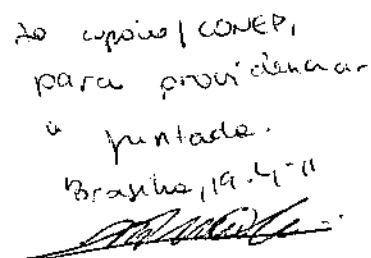 Ao apoio/CONEP,
para providenciar
a juntada.
Brasília, 19.4.11